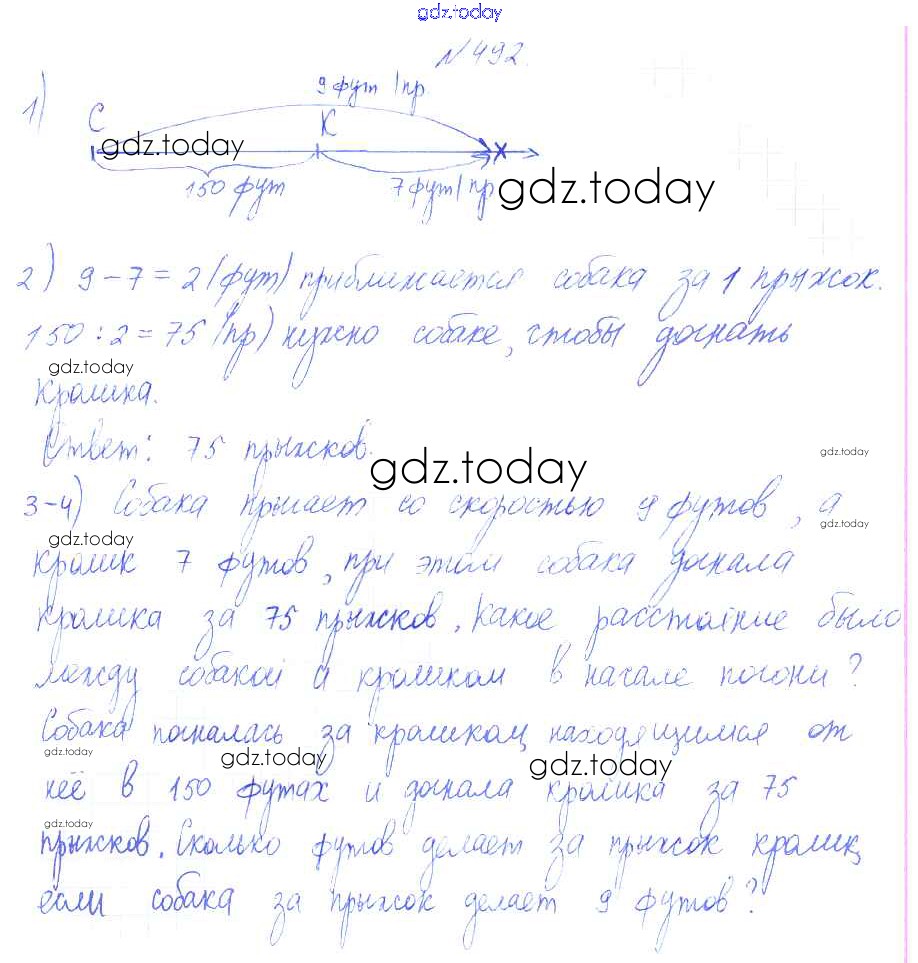 gdz.today
№492.
9 фут/пр
1)
С К
gdz.today
150 фут 7 фут/пр gdz.today
2) 9-7=2 (фут) приближается собака за 1 прыжок.
150:2=75 (пр) нужно собаке, чтобы догнать
gdz.today
кролика.
Ответ: 75 прыжков.
gdz.today gdz.today
3-4) Собака прыгает со скоростью 9 футов, а
gdz.today gdz.today
кролик 7 футов, при этом собака догнала
кролика за 75 прыжков. Какое расстояние было
между собакой и кроликом в начале погони?
Собака погналась за кроликом, находящимся от
gdz.today gdz.today gdz.today
неё в 150 футах и догнала кролика за 75
gdz.today
прыжков. Сколько футов делает за прыжок кролик,
если собака за прыжок делает 9 футов?